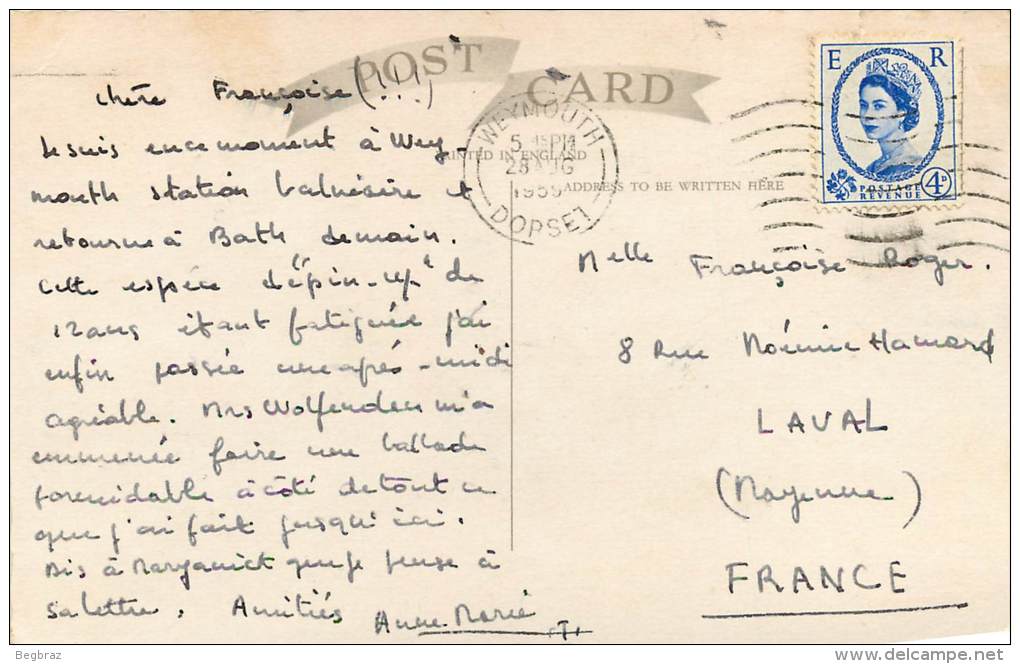 POST CARD
PRINTED IN ENGLAND
ADDRESS TO BE WRITTEN HERE
E R
POSTAGE
REVENUE
4D
WEYMOUTH
5 15 PM
28 AUG
DORSET
chère Françoise (!!!)
Je suis en ce moment à Wey-
mouth station balnéaire et
retourne à Bath demain.
Cette espèce d'"épin-up" de
12 ans étant fatiguée j'ai
enfin passée une après-midi
agréable. Mrs Wolfenden m'a
emmenée faire une ballade
formidable à côté de tout ce
que j'ai fait jusqu'ici.
Dis à que je pense à
sa lettre. Amitiés Anne-Marie
Melle Françoise Roger.
8 Rue Noémie Hamard
LAVAL
(Mayenne)
FRANCE
Begbraz
www.delcampe.net